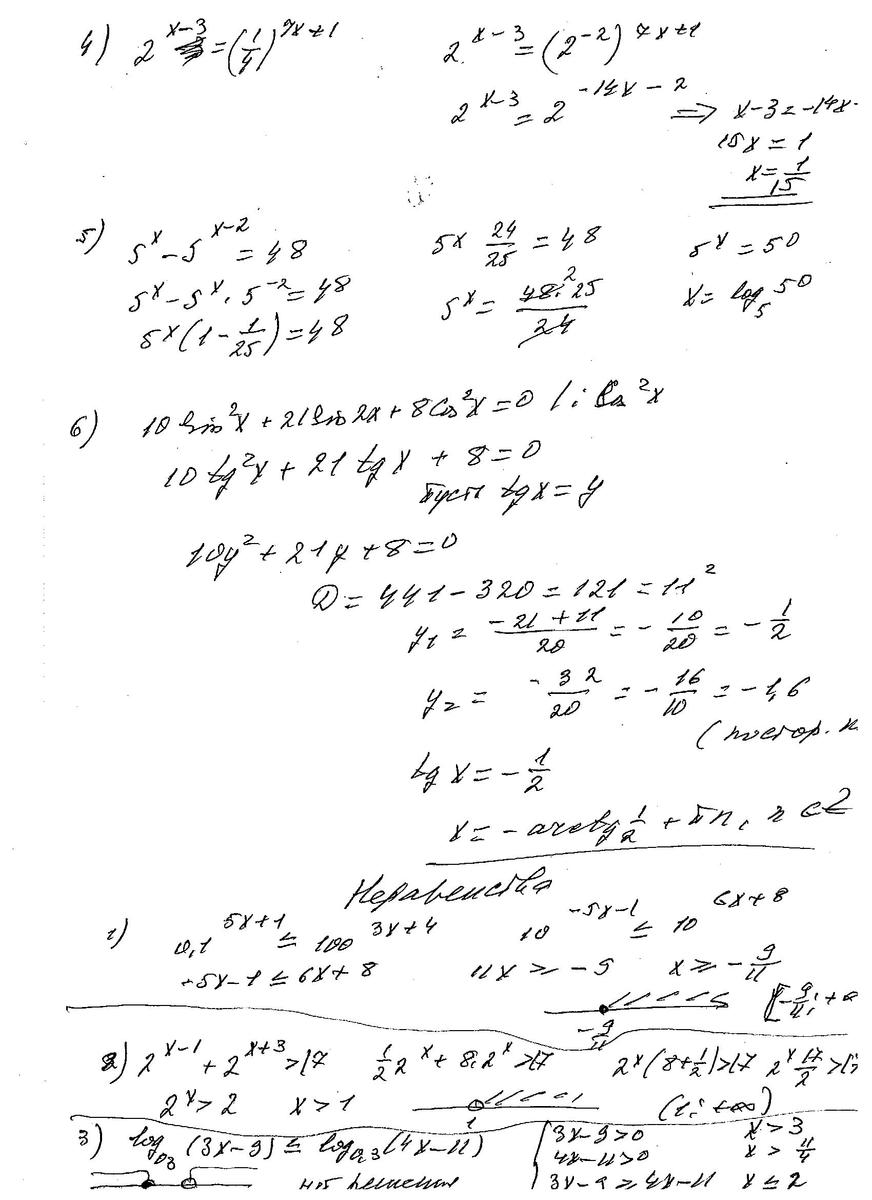 4) 2^{x-3} = (1/4)^{7x+1}     2^{x-3} = (2^{-2})^{7x+1}
2^{x-3} = 2^{-14x-2} => x-3=-14x-
15x = 1
x = 1/15
5) 5^x - 5^{x-2} = 48     5x 24/25 = 48     5^x = 50
5^x - 5^x · 5^{-2} = 48     5^x = 48·25/24 2     x = log_5 50
5^x(1 - 1/25) = 48
6) 10 sin²x + 21 sin 2x + 8 cos²x = 0 /: cos²x
10 tg²x + 21 tg x + 8 = 0
Пусть tg x = y
10y² + 21y + 8 = 0
D = 441 - 320 = 121 = 11²
y₁ = (-21 + 11)/20 = -10/20 = -1/2
y₂ = -32/20 = -16/10 = -1,6
(постор. к
tg x = -1/2
x = -arctg 1/2 + πn, n ∈ Z
Неравенства
1) 0,1^{5x+1} ≤ 100^{3x+4}     10^{-5x-1} ≤ 10^{6x+8}
-5x-1 ≤ 6x+8     11x ≥ -9     x ≥ -9/11
-9/11     [-9/11; +∞
2) 2^{x-1} + 2^{x+3} > 17     1/2 2^x + 8·2^x > 17     2^x(8+1/2) > 17     2^x 17/2 > 17
2^x > 2     x > 1     1     (1; +∞)
3) log_{0,3} (3x-9) ≤ log_{0,3} (4x-11)     { 3x-9>0     x > 3
4x-11>0     x > 11/4
нет решения     3x-9 ≥ 4x-11     x ≤ 2